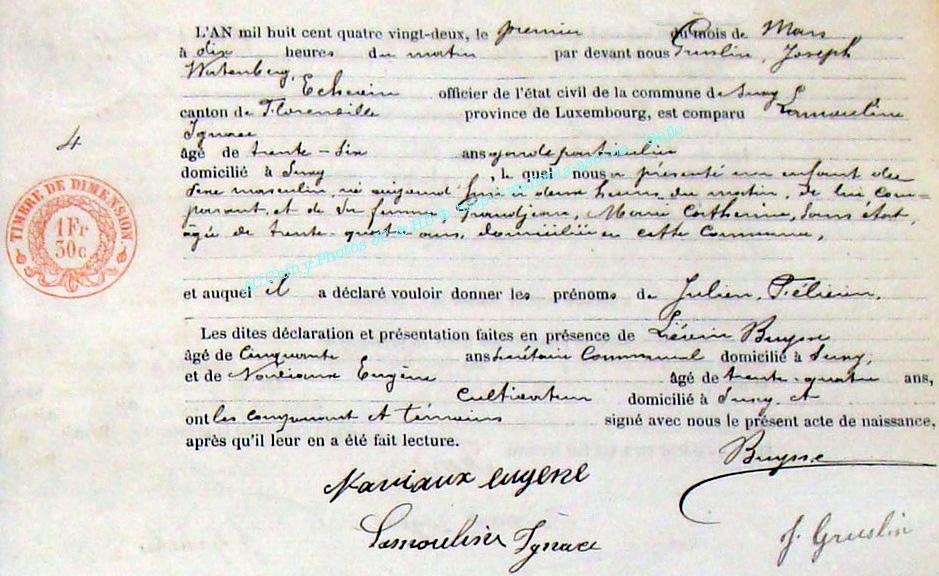 L'AN mil huit cent quatre vingt-deux, le premier du mois de Mars
à dix heures du matin par devant nous Gruslin, Joseph
Echevin officier de l'état civil de la commune de Suxy
canton de Florenville province de Luxembourg, est comparu Lamouline
Ignace
4
âgé de trente-six ans garde particulier
domicilié à Suxy, lequel nous a présenté un enfant du
Sexe masculin, né aujourd'hui à deux heures du matin, de lui com=
parant, et de Sa femme Grandjean, Marie Catherine, Sans état,
âgée de trente-quatre ans, domiciliée en cette Commune,
TIMBRE DE DIMENSION.
1 Fr
30 c.
et auquel il a déclaré vouloir donner les prénoms de Julien, Félicien,
Les dites déclaration et présentation faites en présence de Liévin Buysse
âgé de Cinquante ans Secrétaire Communal domicilié à Suxy,
et de Eugène âgé de trente-quatre ans,
Cultivateur domicilié à Suxy, et
ont les comparant et témoins signé avec nous le présent acte de naissance,
après qu'il leur en a été fait lecture.
Buysse
Mariaux eugene
Lamouline Ignace
J. Gruslin